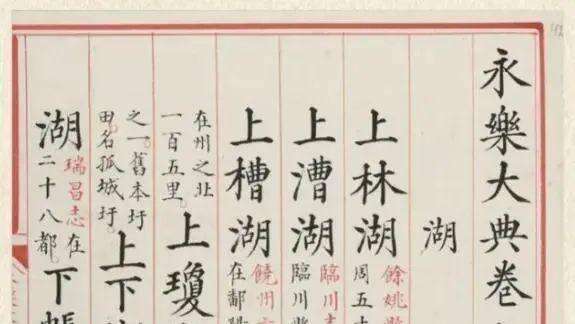 永樂大典卷
湖
上林湖餘姚周五十
上漕湖臨川臨川
上槽湖饒州在鄱
在州之北一百五里上瓊
之一舊本圩田名孤城圩上下
湖瑞昌志在二十八都下